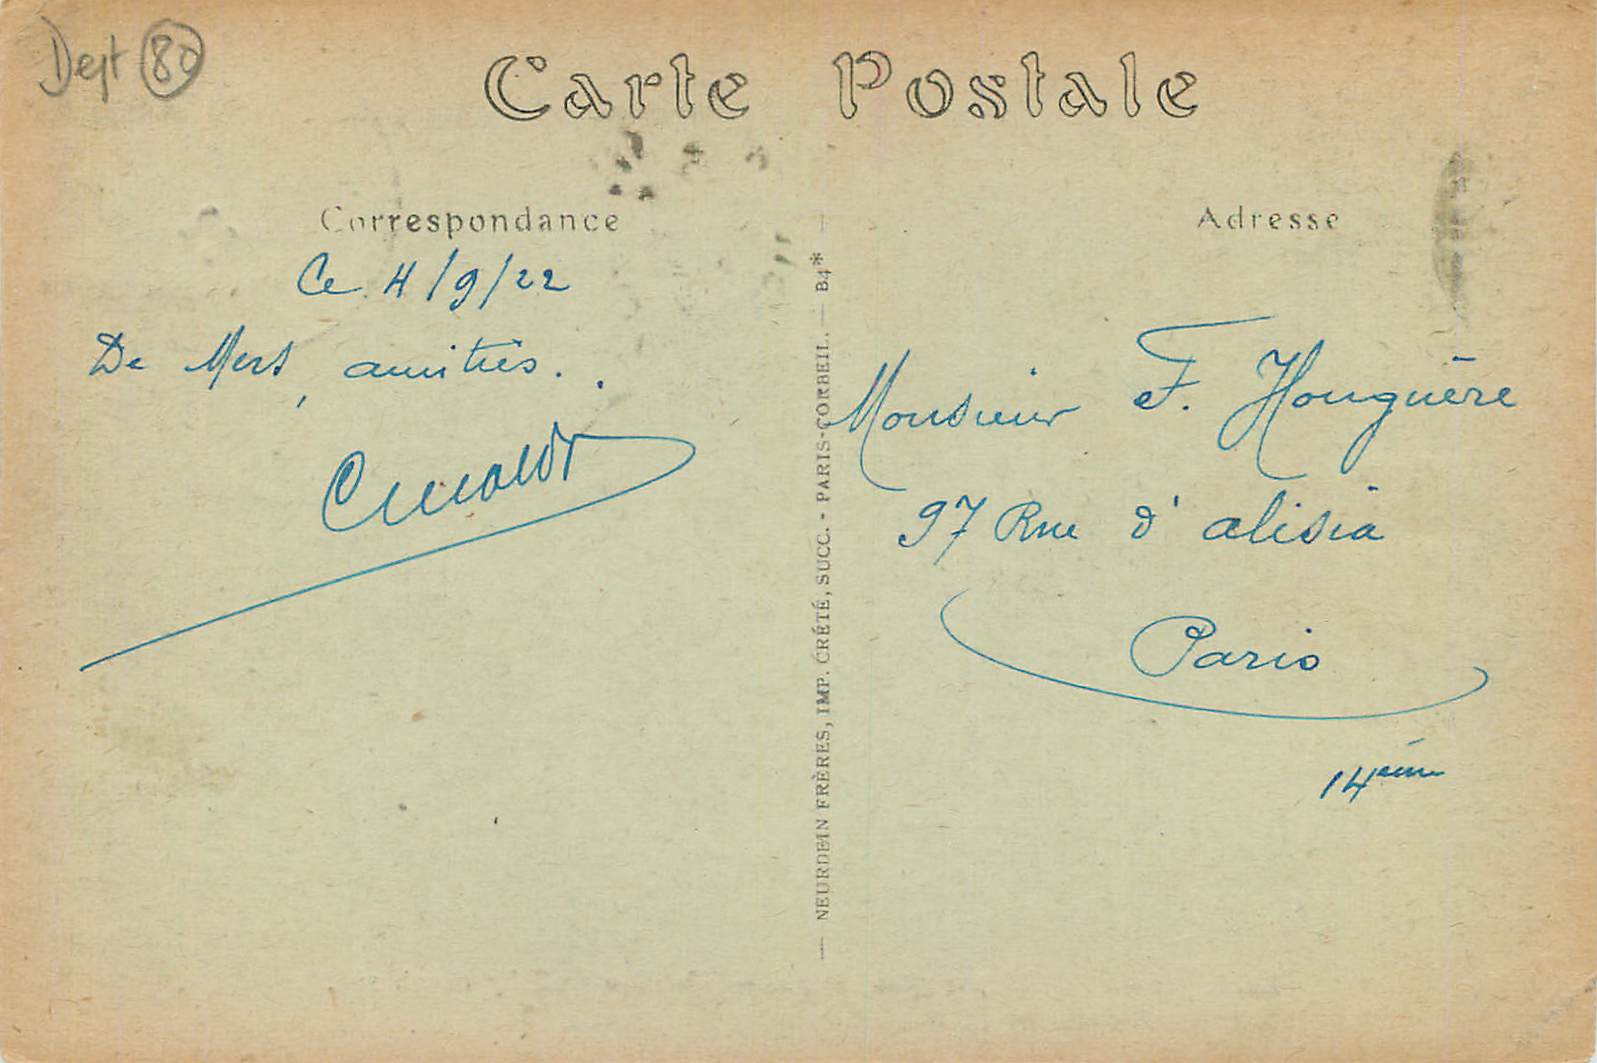 Dept 80
Carte Postale
Correspondance
Ce 4/9/22
De Mers, amitiés..
NEURDEIN FRÈRES, IMP. CRÉTÉ, SUCC. - PARIS-CORBEIL. — B4*
Adresse
Monsieur F. Houguère
97 Rue d' alisia
Paris
14ème